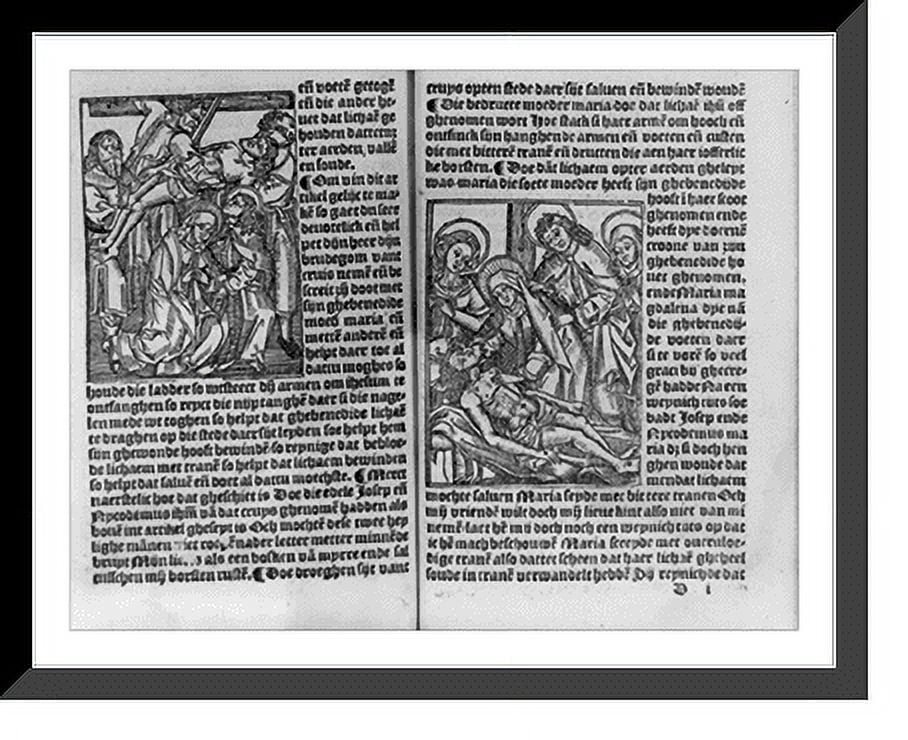 en̄ voetē getogē
en̄ die ander he-
uet dat lichaē ge
houden dattent
ter aerden, vallē
en soude.
¶ Om v in dit ar
tikel gelijc te ma-
kē so gaet du seer
deuotelick en̄ hel
pet dijn heer dijn
brudegom vant
cruis nemē en̄ be
screit zij doot met
sijn ghebenedide
moed maria en̄
mettē anderē en̄
helpt daer toe al
dattu moghes so
houde die ladder so wtsteect dij armen om ihesum te
ontfanghen so repct die nijptanghē daer si die nage-
len mede wt toghen so helpt dat ghebenedide lichaē
te draghen op die stede daer sijt leyden soe helpt hem
sijn ghewonde hooft bewindē so reynige dat bebloe-
de lichaem met tranē so helpt dat lichaem bewinden
so helpt dat saluē en̄ doet al dattu moechste. ¶ Merct
naerstelic hoe dat gheschiet is Doe die edele Josep en̄
Nycodemus ihm̄ vā dat cruys ghenomē hadden als
bouē int artikel ghescyt is Och mochtē dese twee hey
lighe mānen nader letter metter minnēde
bruyt Mijn als een bosken vā myrre ende sal
tusschen mij borsten rustē. ¶ Doe droeghen sijt vant
cruys opten stede daer sijt saluen en̄ bewindē woudē
¶ Die bedructe moeder maria doe dat lichaē ihū off
ghenomen wort Hoe stack si haer armē om hooch en̄
ontfinck sijn hanghende armen en̄ voeten en̄ custen
die met bitterē tranē en̄ dructen die aen haer iofferlic
ke borsten. ¶ Doe dat lichaem opter aerden gheleyt
was maria die soete moeder heeft sijn ghebenedide
hooft i haer scoot
ghenomen ende
heeft dye doernē
croone van zijn
ghebenedide ho
uet ghenomen,
ende Maria ma
gdalena dye nā
die ghebenedi-
de voeten daer
si te vorē so veel
graci bij ghecre-
gē hadde Na een
weynich tijts soe
badt Josep ende
Nycodimus ma
ria dz si doch hen
ghen woude dat
mendat lichaem
mochte saluen Maria seyde met bittere tranen Och
mij vriendē wilt doch mij lieue kint also niet van mi
nemē laet hē mij doch noch een weynich tijts op dat
ic hē mach bescouwē Maria screyde met ouervloe-
dige tranē also dattet scheen dat haer lichaē gheheel
soude in tranē verwandelt hebbē Sij reynichde dat
D i